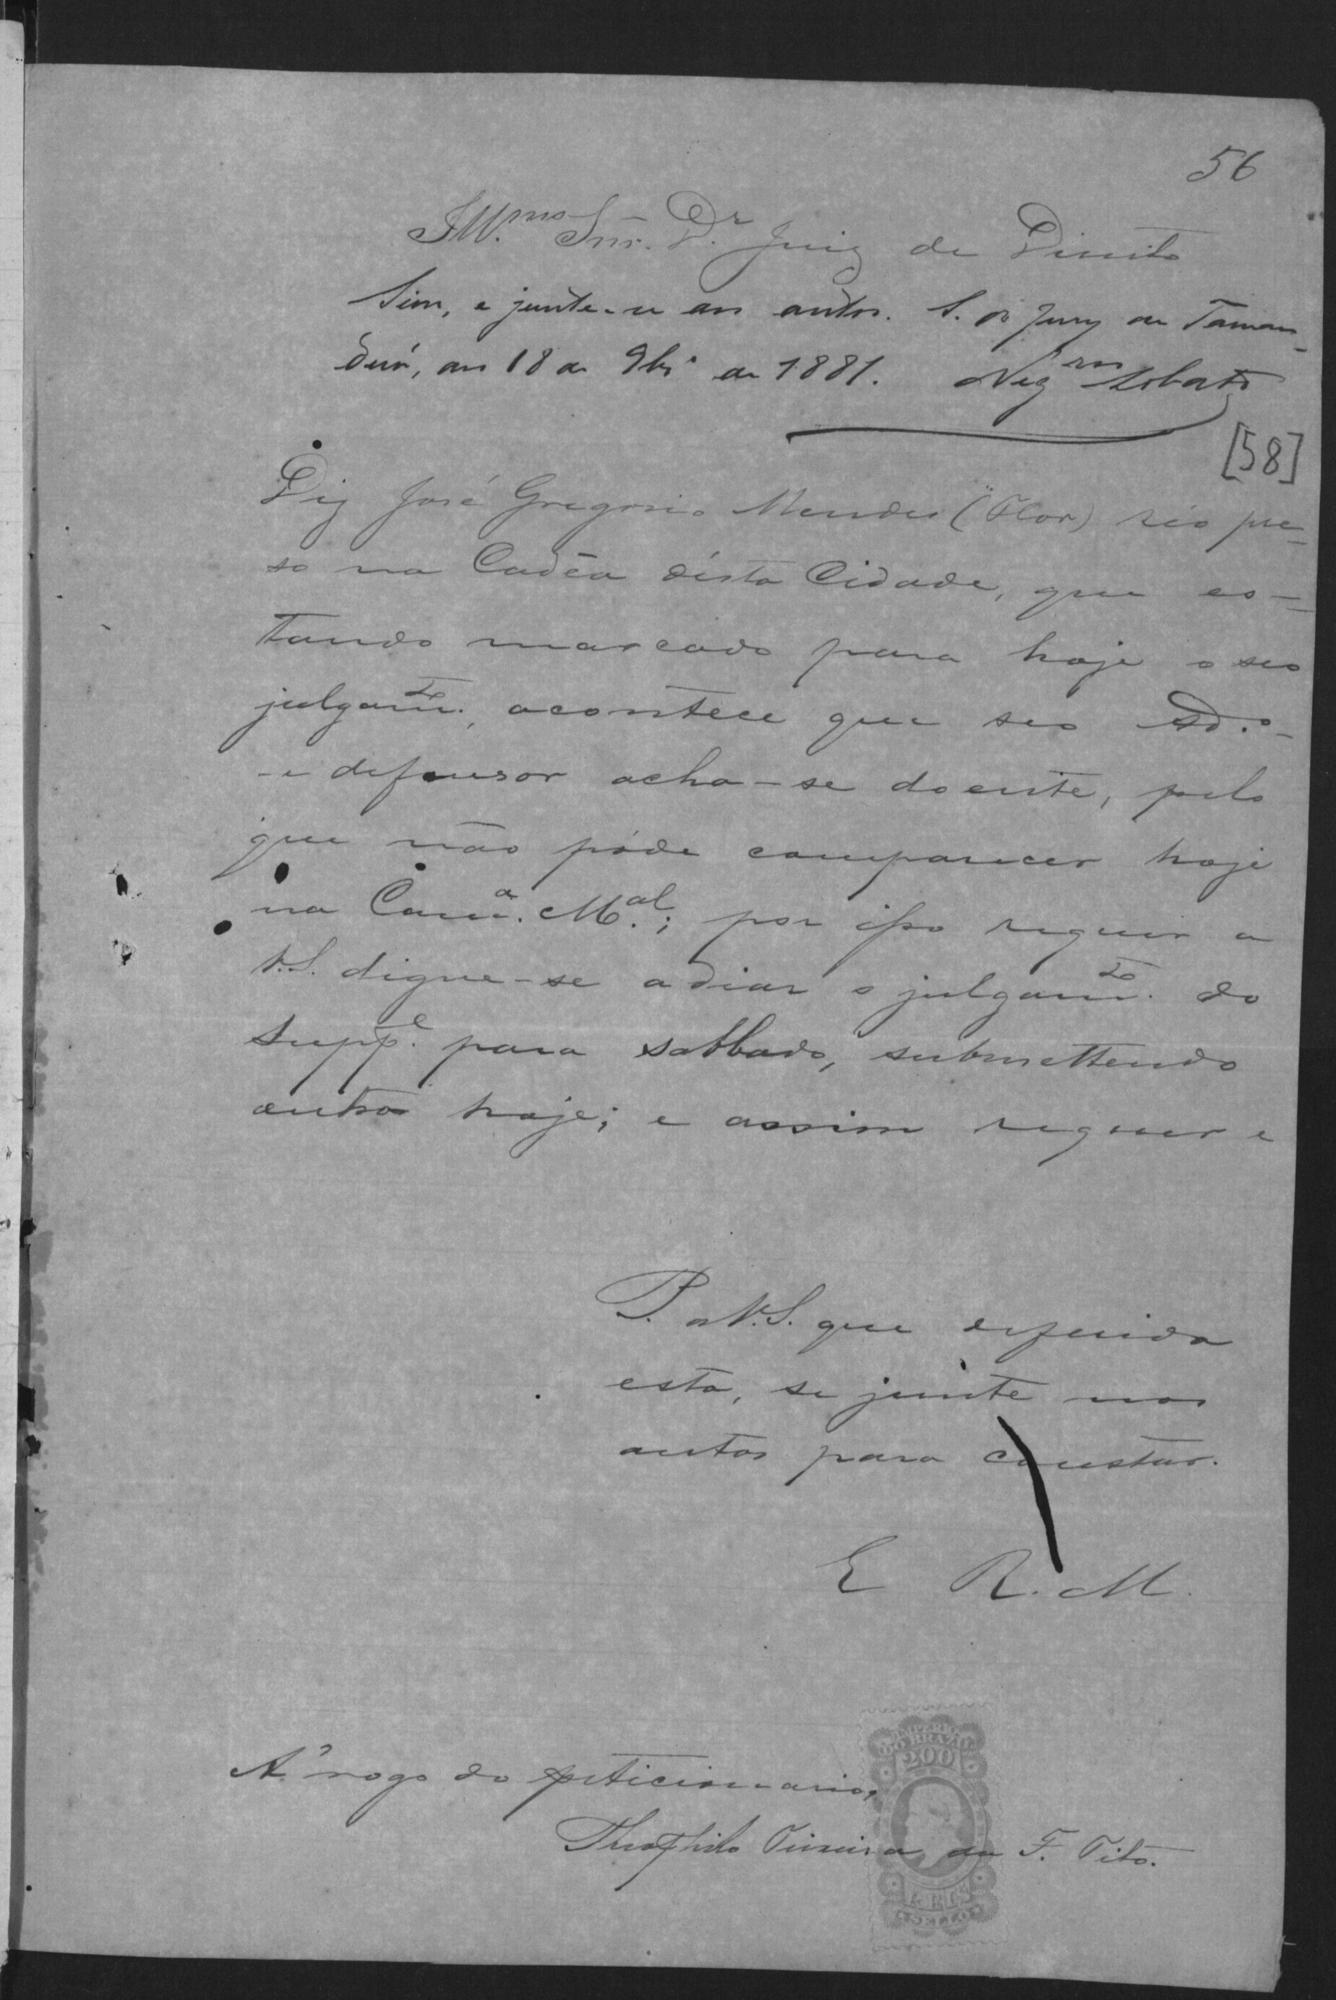 56
Illmo Snr. Dr. Juiz de Direito
Sim, e junte-se aos autos. S. do Jury de Taman-
duá, aos 18 de 9br.o de 1881. Lobato
[58]
Diz José Gregorio Mendes (Flor) réo pre-
so na Cadêa désta Cidade, que es-
tando marcado para hoje o seo
julgamto., acontece que seo Ado.-
-e defensor acha-se doente, pelo
que não póde comparecer hoje
na Cama. Mal.; por isso requer a
V.S. digne-se adiar o julgamto. do
Suppe. para sabbado, submettendo
outros hoje; e assim requer e
P. a V.S. que deferida
esta, se junte nos
autos para constar.
E R. M.
A' rogo do peticionario,
Theophilo Teixeira da F. Tito.
IMPERIO
DO BRAZIL
200
REIS
SELLO